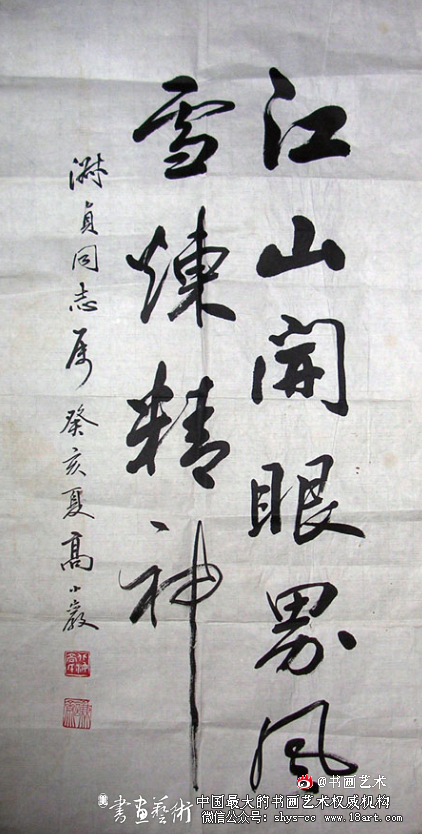 江山開眼界風
雪煉精神
淑貞同志屬 癸亥夏 高小嚴
@书画艺术
書画藝術
中国最大的书画艺术权威机构
微信公众号：shys-cc www.18art.com